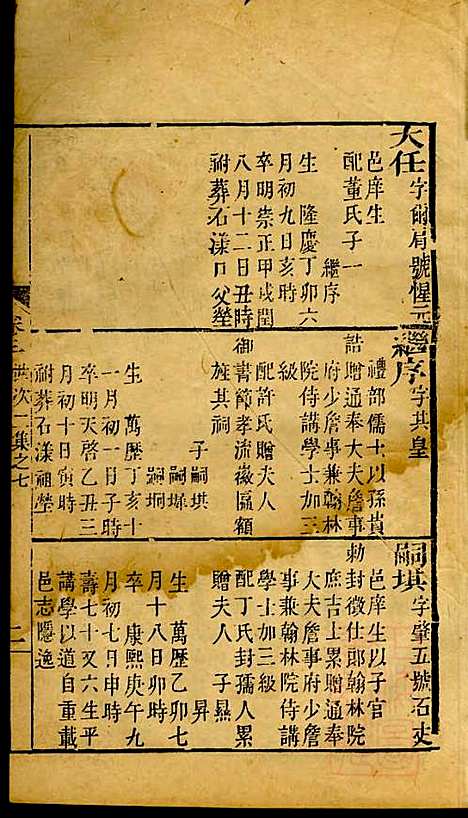 天任 字爾肩號惺元
邑庠生
配董氏子一
繼序
生 隆慶丁卯六
月初九日亥時
卒明崇正甲戌閏
八月十二日丑時
祔葬石漾口父塋
繼序 字其皇
禮部儒士以孫貴
誥贈通奉大夫詹事
府少詹事兼翰林
院侍講學士加三
級
配許氏贈夫人
御書節孝流徽匾額
旌其祠
子嗣埧
嗣墀
嗣垌
生 萬歷丁亥十
一月初一日子時
卒明天啓乙丑三
月初十日寅時
祔葬石漾祖塋
嗣埧 字肇五號石丈
邑庠生以子官
勅封徵仕郎翰林院
庶吉士累贈通奉
大夫詹事府少詹
事兼翰林院侍講
學士加三級
配丁氏封孺人累
贈夫人 子
昇
生 萬歷乙卯七
月十八日卯時
卒 康熙庚午九
月初七日申時
壽七十又六生平
講學以道自重載
邑志隱逸
卷三 世次二集之七
二